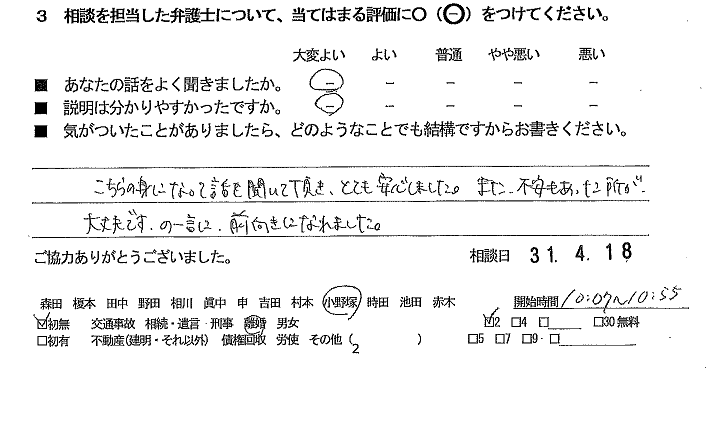 3 相談を担当した弁護士について、当てはまる評価に○(⊖)をつけてください。
大変よい よい 普通 やや悪い 悪い
■ あなたの話をよく聞きましたか。 − − − − −
■ 説明は分かりやすかったですか。 − − − − −
■ 気がついたことがありましたら、どのようなことでも結構ですからお書きください。
こちらの身になって話を聞いて頂き、とても安心しました。また、不安もあった所が
大丈夫です、の一言に、前向きになれました。
ご協力ありがとうございました。 相談日 31.4.18
森田 榎本 田中 野田 相川 眞中 申 吉田 村本 小野塚 時田 池田 赤木 開始時間 10:07~10:55
☑初無 交通事故 相続・遺言・刑事 離婚 男女 ☑2 □4 □ □30無料
□初有 不動産(建明・それ以外) 債権回収 労使 その他( 2 ) □5 □7 □9・□